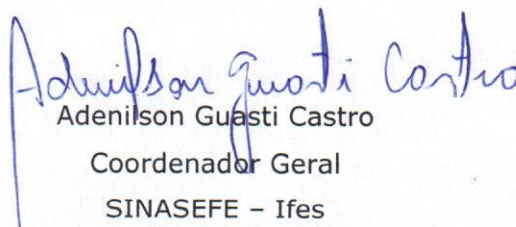 Adenilson Guasti Castro
Adenilson Guasti Castro
Coordenador Geral
SINASEFE – Ifes